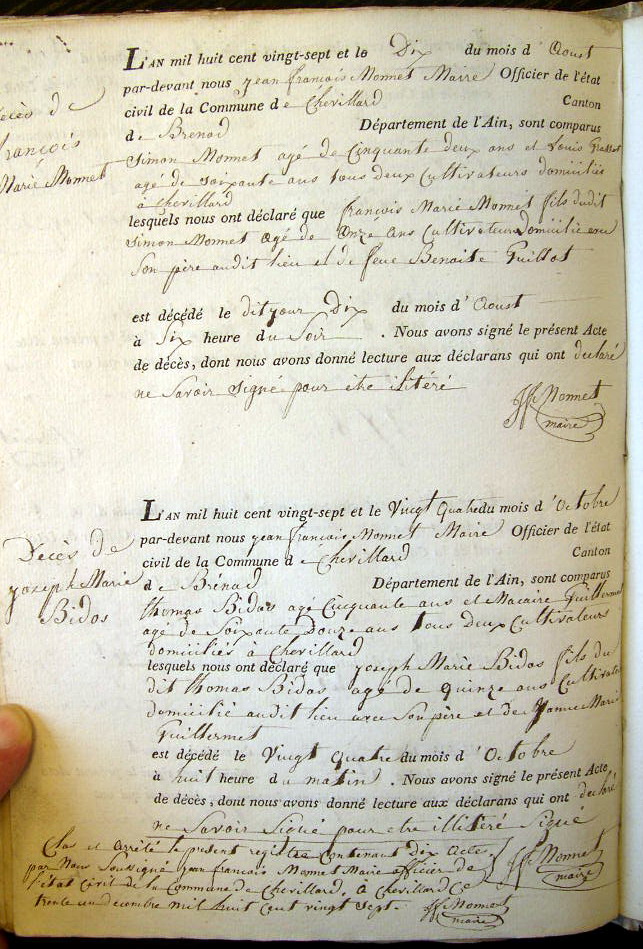 Décès de
françois
Marie Monnet
L'AN mil huit cent vingt-sept et le Dix du mois d'Aoust
par-devant nous jean françois Monnet Maire Officier de l'état
civil de la Commune de Chevillard Canton
de Brenod Département de l'Ain, sont comparus
Simon Monnet agé de Cinquante deux ans et Louis
agé de soixante ans tous deux Cultivateurs domiciliés
à Chevillard
lesquels nous ont déclaré que françois Marie Monnet fils dudit
Simon Monnet agé de Onze ans Cultivateur Domicilié avec
Son père audit lieu et de feue Benoite Guillot
est décédé le ditjour Dix du mois d'Aoust
à Six heure du Soir . Nous avons signé le présent Acte
de décès, dont nous avons donné lecture aux déclarans qui ont declaré
ne Savoir signé pour ête ilitéré
JF Monnet
maire
Décès de
joseph Marie
Bidos
L'AN mil huit cent vingt-sept et le Vingt Quatre du mois d'Octobre
par-devant nous jean francois Monnet Maire Officier de l'état
civil de la Commune de Chevillard Canton
de Brénod Département de l'Ain, sont comparus
thomas Bidos agé Cinquante ans et Macaire Guillermet
agé de Soixante Douze ans tous Deux Cultivateurs
domiciliés à Chevillard
lesquels nous ont déclaré que joseph Marie Bidos fils du
dit thomas Bidos agé de quinze ans Cultivateur
domicilié audit lieu avec Son père et de Marie
Guillermet
est décédé le Vingt quatre du mois d'Octobre
à huit heure du matin . Nous avons signé le présent Acte
de décès, dont nous avons donné lecture aux déclarans qui ont declaré
ne Savoir Signé pour etre illitéré Signé
JF Monnet
maire
Clos et arrêté le présent registre Contenant dix actes
par Nous Soussigné jean françois Monnet Maire officier de
l'état Civil de la Commune de Chevillard. à Chevillard Ce
trente un decembre mil huit Cent vingt Sept.
JF Monnet
maire